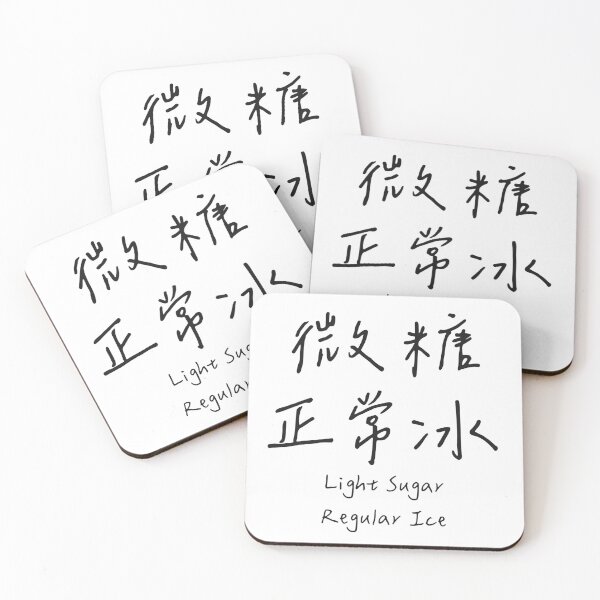 微糖
正常冰
微糖
正常冰
微糖
正常冰
Light Sug
Regular
微糖
正常冰
Light Sugar
Regular Ice